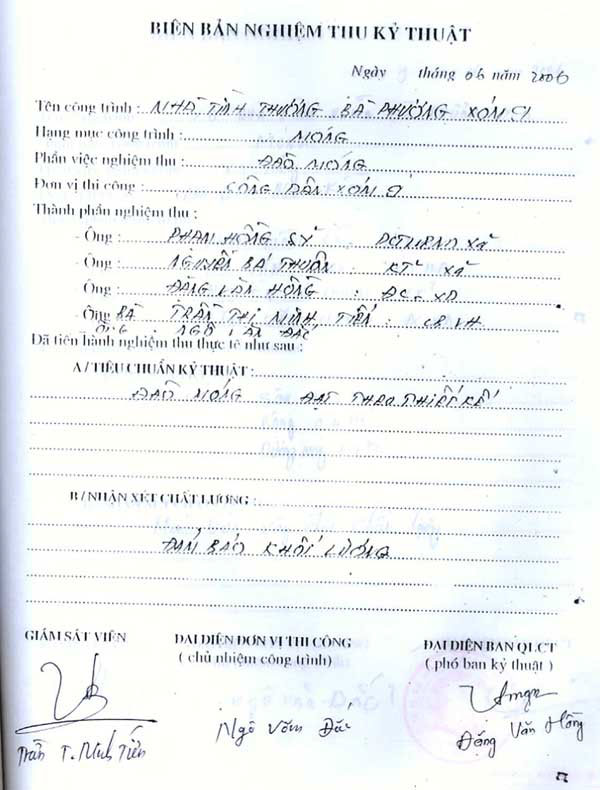 BIÊN BẢN NGHIỆM THU KỸ THUẬT
Ngày tháng 06 năm 2006
Tên công trình : NHÀ TÌNH THƯƠNG BÀ PHƯƠNG XÓM 91
Hạng mục công trình : MÓNG
Phần việc nghiệm thu : ĐÀO MÓNG
Đơn vị thi công : CÔNG DÂN XÓM 91
Thành phần nghiệm thu :
- Ông : PHAN HỒNG SỸ : PCTUBND XÃ
- Ông : NGUYỄN BÁ THUẦN : KT XÃ
- Ông : ĐẶNG VĂN HỒNG : ĐC - XD
- Ông BÀ TRẦN THỊ MINH TIẾN :
ÔNG : NGÔ VĂN ĐẮC
Đã tiến hành nghiệm thu thực tế như sau :
A / TIÊU CHUẨN KỸ THUẬT :
ĐÀO MÓNG ĐẠT THEO THIẾT KẾ
B / NHẬN XÉT CHẤT LƯỢNG :
ĐẢM BẢO KHỐI LƯỢNG
GIÁM SÁT VIÊN
ĐẠI DIỆN ĐƠN VỊ THI CÔNG
( chủ nhiệm công trình)
ĐẠI DIỆN BAN QLCT
( phó ban kỹ thuật )
Trần T. Minh Tiến
Ngô Văn Đắc
Đặng Văn Hồng